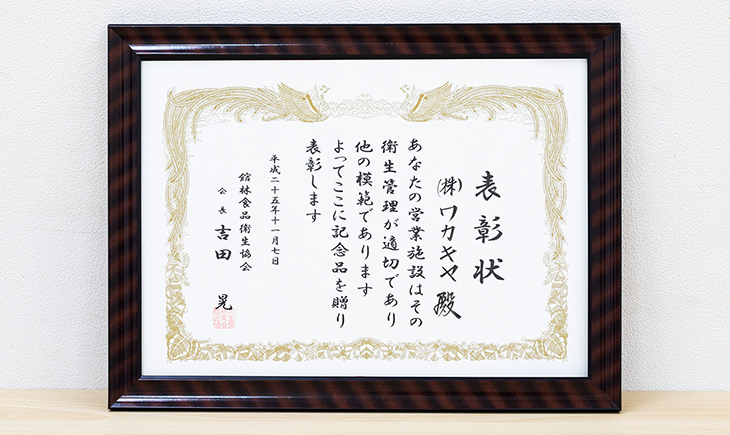 表彰状
(株)ワカキヤ殿
あなたの営業施設はその
衛生管理が適切であり
他の模範であります
よってここに記念品を贈り
表彰します
平成二十五年十一月七日
館林食品衛生協会
会長 吉田 晃